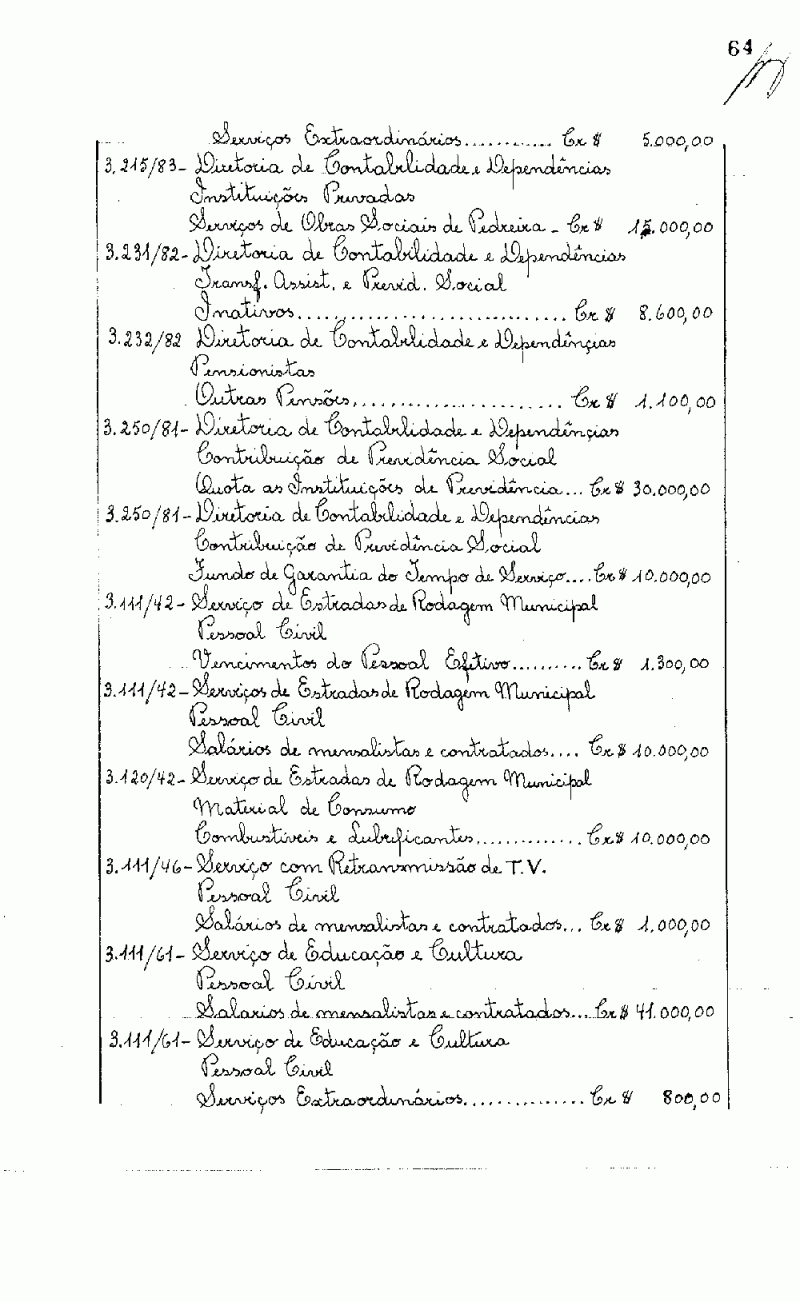 64
Serviços Extraordinários............ Cr$ 5.000,00
3.215/83- Diretoria de Contabilidade e Dependências
Instituições Privadas
Serviços de Obras Sociais de Pedreira - Cr$ 15.000,00
3.231/82- Diretoria de Contabilidade e Dependências
Transf. Assist. e Previd. Social
Inativos.............................. Cr$ 8.600,00
3.232/82 Diretoria de Contabilidade e Dependências
Pensionistas
Outras Pensões....................... Cr$ 1.100,00
3.250/81- Diretoria de Contabilidade e Dependências
Contribuição de Previdência Social
Quota as Instituições de Previdência... Cr$ 30.000,00
3.250/81- Diretoria de Contabilidade e Dependências
Contribuição de Previdência Social
Fundo de Garantia do Tempo de Serviço.... Cr$ 10.000,00
3.111/42- Serviço de Estradas de Rodagem Municipal
Pessoal Civil
Vencimentos do Pessoal Efetivo.......... Cr$ 1.300,00
3.111/42- Serviços de Estradas de Rodagem Municipal
Pessoal Civil
Salários de mensalistas e contratados.... Cr$ 10.000,00
3.120/42- Serviço de Estradas de Rodagem Municipal
Material de Consumo
Combustíveis e Lubrificantes............. Cr$ 10.000,00
3.111/46- Serviço com Retransmissão de T.V.
Pessoal Civil
Salários de mensalistas e contratados... Cr$ 1.000,00
3.111/61- Serviço de Educação e Cultura
Pessoal Civil
Salarios de mensalistas e contratados... Cr$ 41.000,00
3.111/61- Serviço de Educação e Cultura
Pessoal Civil
Serviços Extraordinários............... Cr$ 800,00